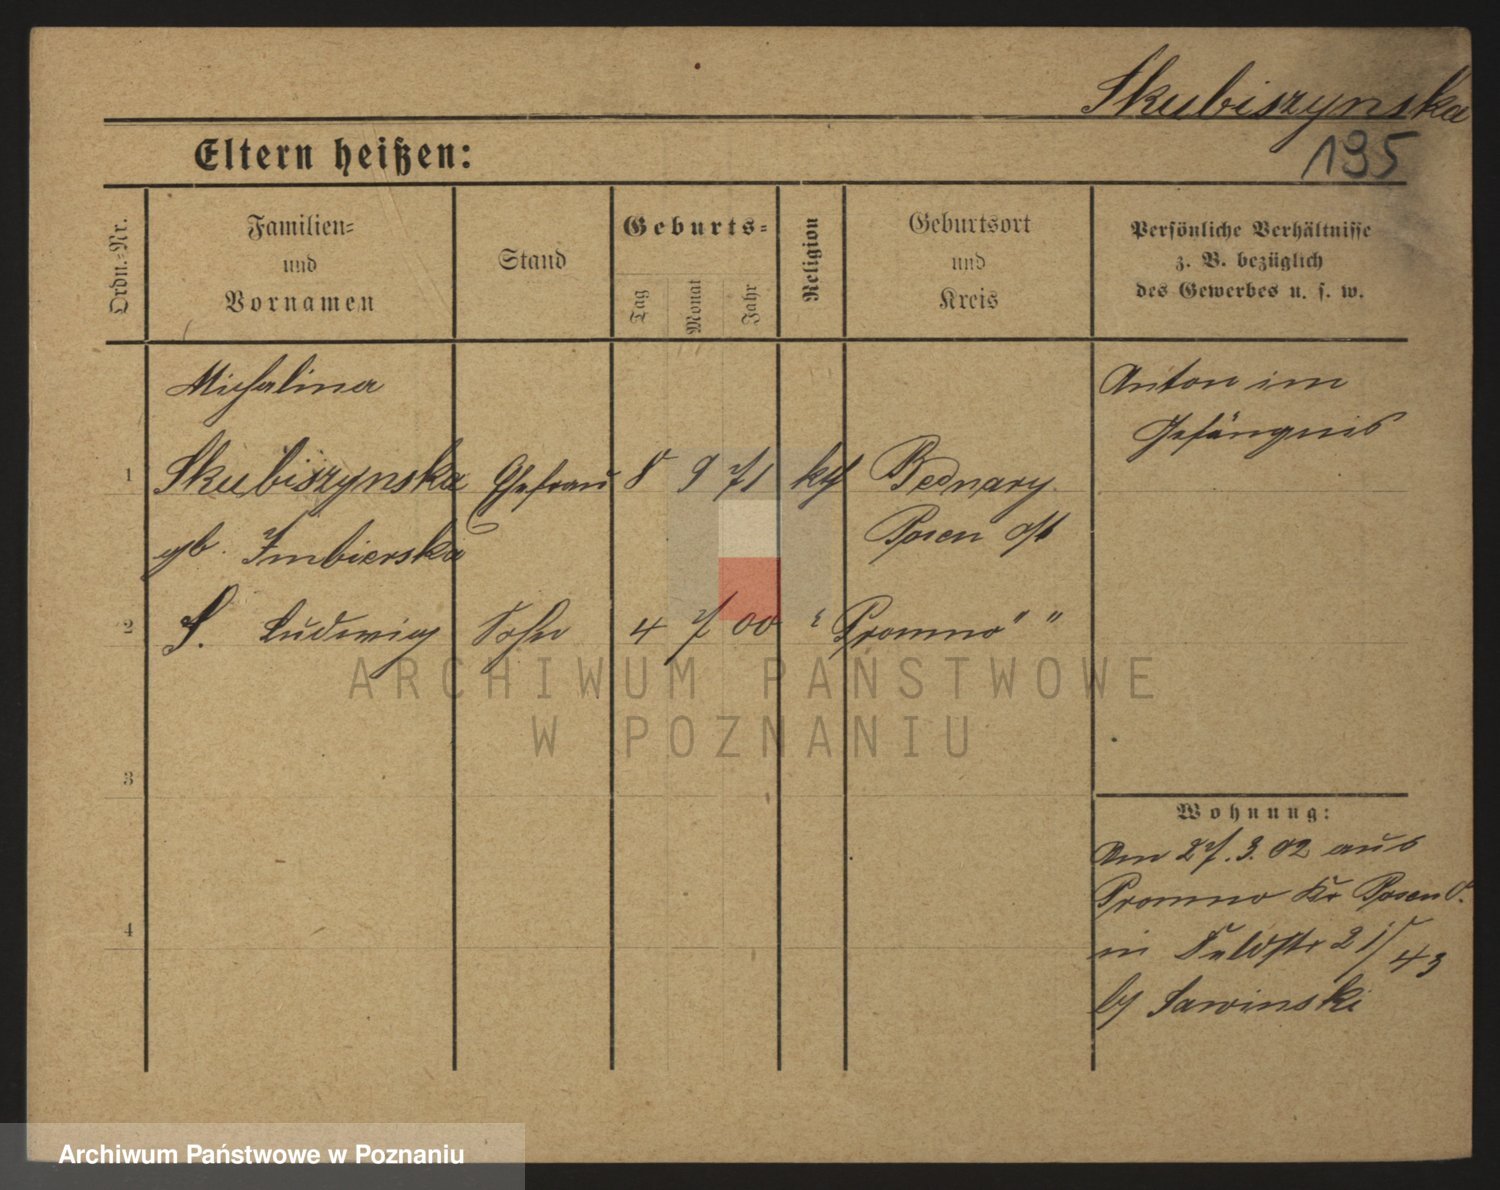 Skubiszynska
195
Eltern heißen:
Ordn.-Nr.
Familien-
und
Vornamen
Stand
Geburts-
Tag
Monat
Jahr
Religion
Geburtsort
und
Kreis
Persönliche Verhältnisse
z. B. bezüglich
des Gewerbes u. s. w.
Michalina
Anton im
Gefängnis
1 Skubiszynska Ehefrau 8 9 71 kth Bednary
gb. Imbierska Posen Ost
2 S. Ludwig Sohn 4 7 00 " Promno " "
3
4
Wohnung:
Am 27.3.02 aus
Promno Kr Posen O.
in
by Sawinski
ARCHIWUM PAŃSTWOWE
W POZNANIU
Archiwum Państwowe w Poznaniu